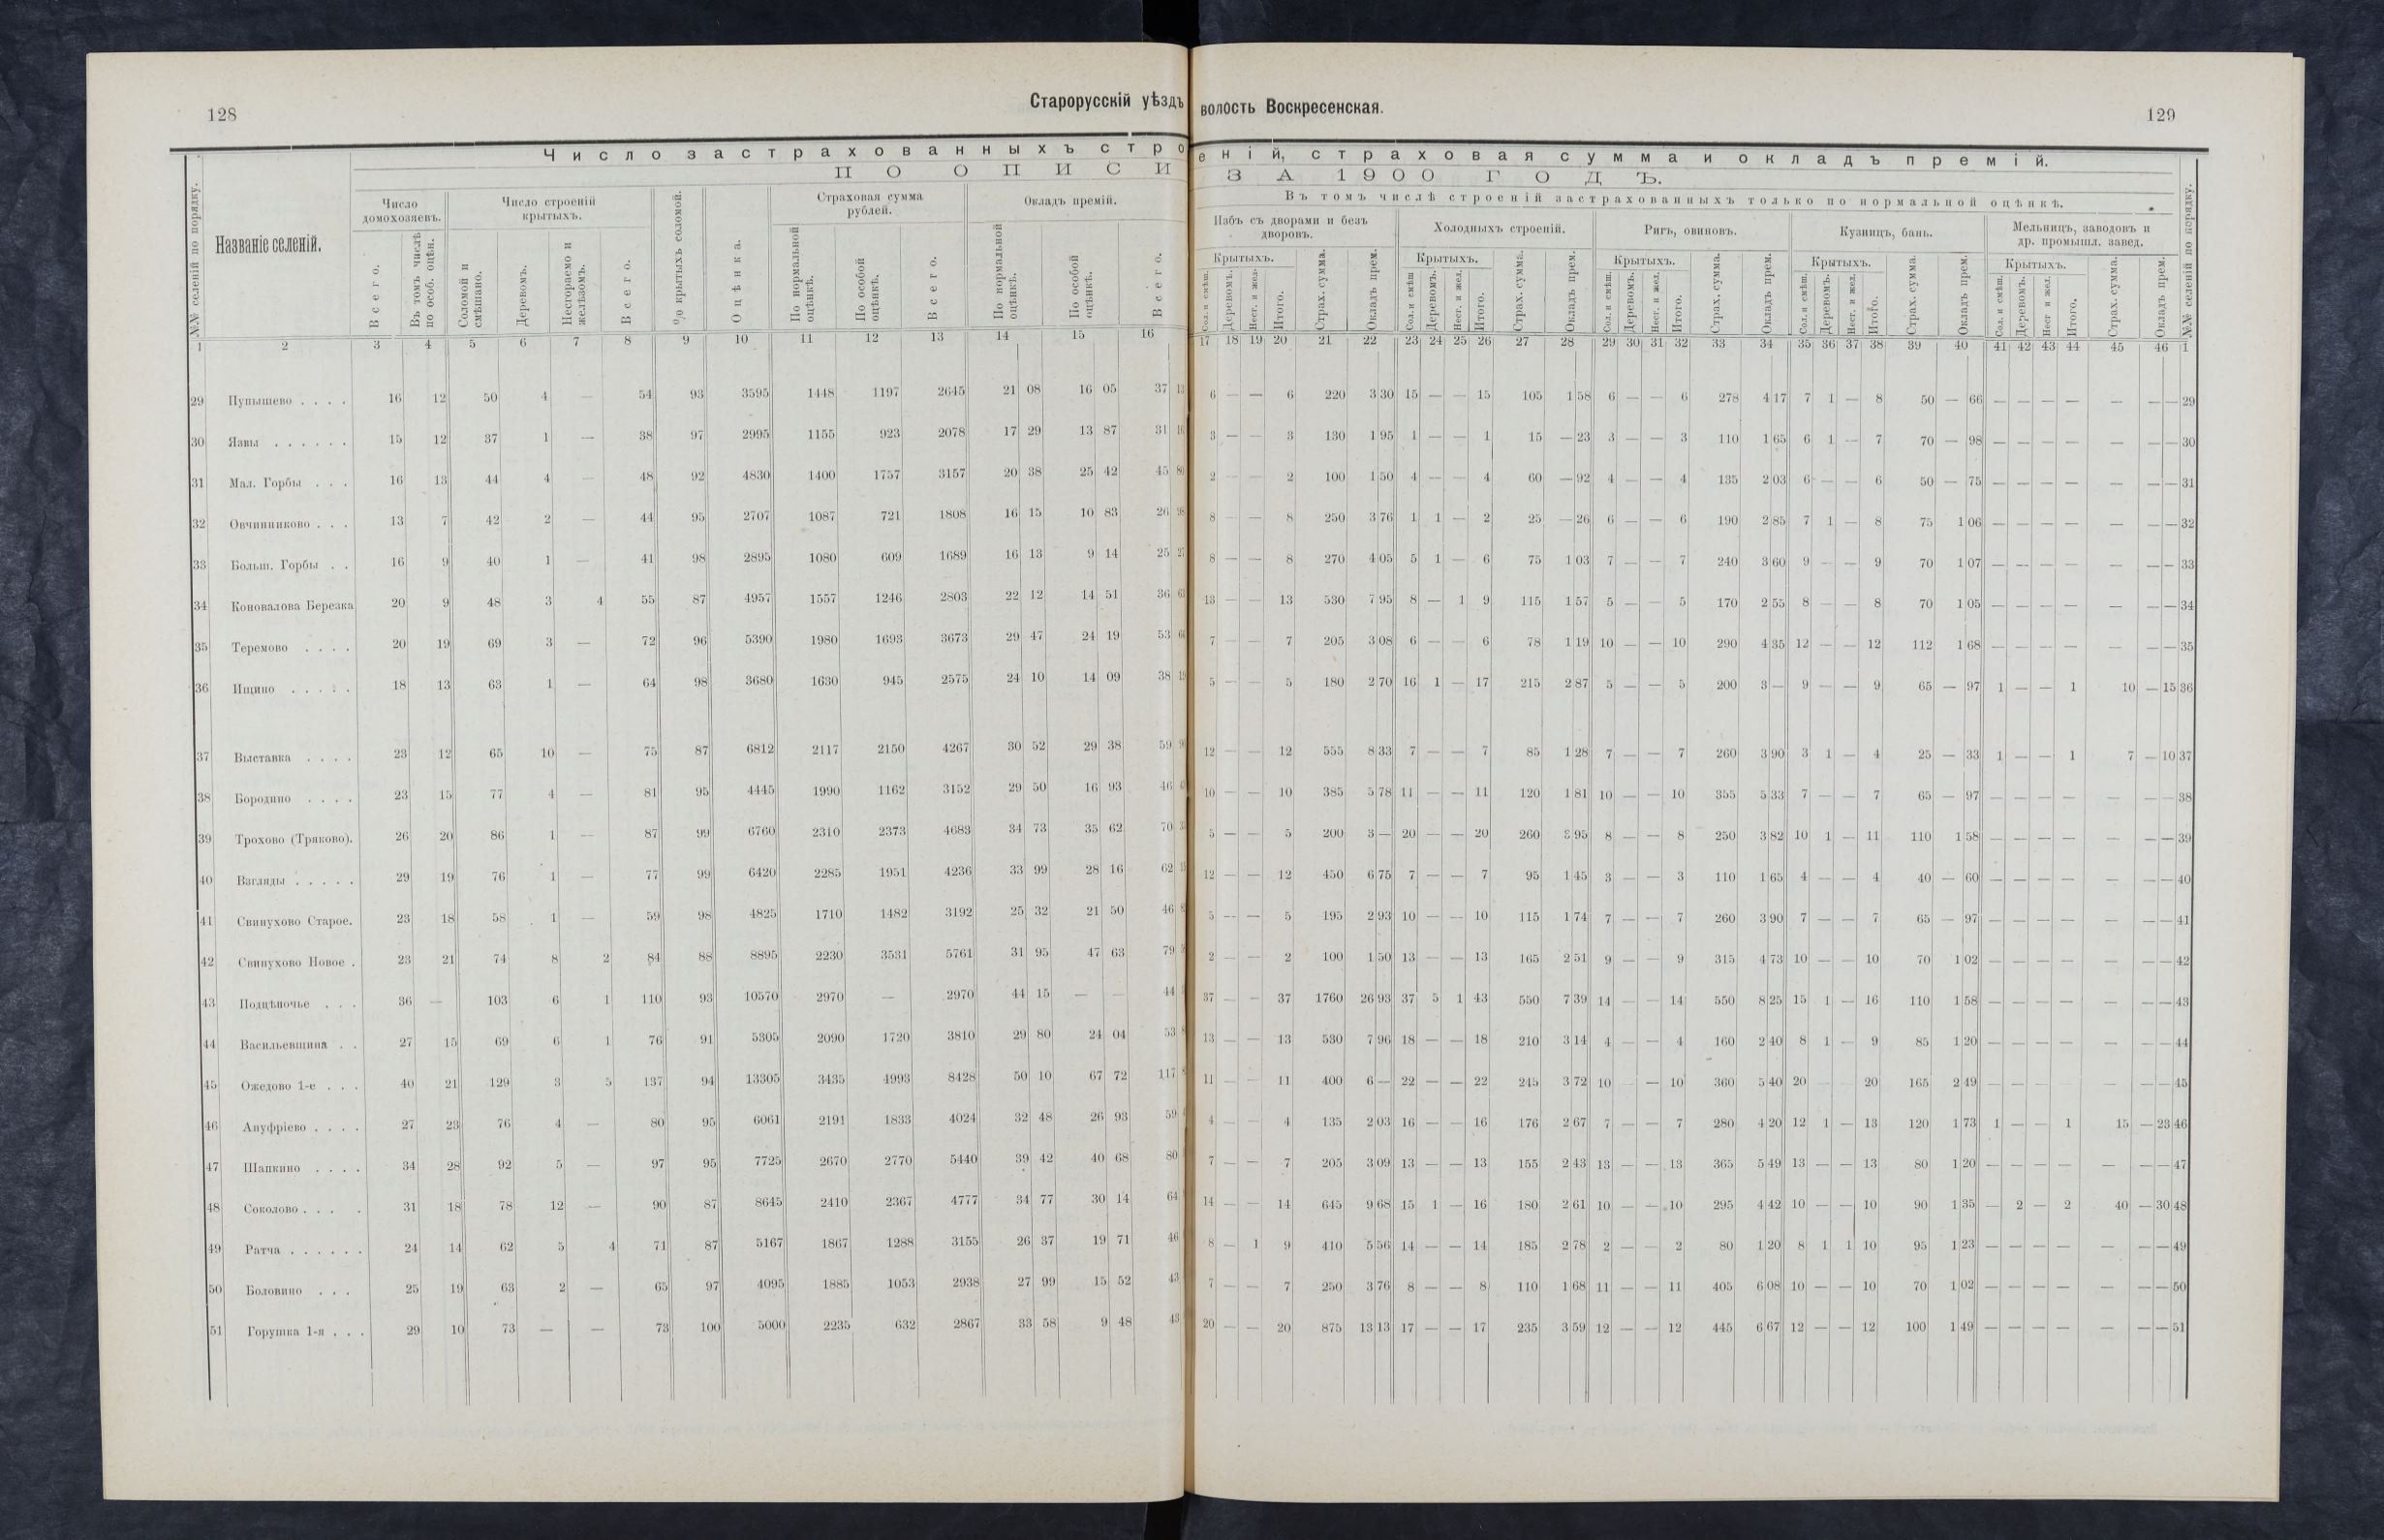 128
Старорусскій уѣздъ
Число застрахованныхъ стро
ПО ОПИСИ
№№ селеній по порядку.
Названіе селеній.
Число домохозяевъ.
Число строеній крытыхъ.
% крытыхъ соломой.
Оцѣнка.
Страховая сумма рублей.
Окладъ премій.
Всего.
Въ томъ числѣ по особ. оцѣн.
Соломой и смѣшано.
Деревомъ.
Несгораемо и желѣзомъ.
Всего.
По нормальной оцѣнкѣ.
По особой оцѣнкѣ.
Всего.
По нормальной оцѣнкѣ.
По особой оцѣнкѣ.
Всего.
1 2 3 4 5 6 7 8 9 10 11 12 13 14 15 16
29 Пупышево . . . . 16 12 50 4 — 54 93 3595 1448 1197 2645 21 08 16 05 37
30 Язвы . . . . . . 15 12 37 1 — 38 97 2995 1155 923 2078 17 29 13 87 31
31 Мал. Горбы . . . 16 13 44 4 — 48 92 4830 1400 1757 3157 20 38 25 42 45
32 Овчинниково . . . 13 7 42 2 — 44 95 2707 1087 721 1808 16 15 10 83 26
33 Больш. Горбы . . 16 9 40 1 — 41 98 2895 1080 609 1689 16 13 9 14 25
34 Коновалова Березка 20 9 48 3 4 55 87 4957 1557 1246 2803 22 12 14 51 36
35 Теремово . . . . 20 19 69 3 — 72 96 5390 1980 1693 3673 29 47 24 19 53
36 Ищино . . . . . 18 13 63 1 — 64 98 3680 1630 945 2575 24 10 14 09 38
37 Выставка . . . . 23 12 65 10 — 75 87 6812 2117 2150 4267 30 52 29 38 59
38 Бородино . . . . 23 15 77 4 — 81 95 4445 1990 1162 3152 29 50 16 93 46
39 Трохово (Тряково). 26 20 86 1 — 87 99 6760 2310 2373 4683 34 73 35 62 70
40 Взгляды . . . . . 29 19 76 1 — 77 99 6420 2285 1951 4236 33 99 28 16 62
41 Свинухово Старое. 23 18 58 1 — 59 98 4825 1710 1482 3192 25 32 21 50 46
42 Свинухово Новое . 23 21 74 8 2 84 88 8895 2230 3531 5761 31 95 47 63 79
43 Подцѣпочье . . . 36 — 103 6 1 110 93 10570 2970 — 2970 44 15 — — 44
44 Васильевщина . . 27 15 69 6 1 76 91 5305 2090 1720 3810 29 80 24 04 53
45 Ожедово 1-е . . . 40 21 129 3 5 137 94 13305 3435 4993 8428 50 10 67 72 117
46 Ануфріево . . . . 27 23 76 4 — 80 95 6061 2191 1833 4024 32 48 26 93 59
47 Шапкино . . . . 34 28 92 5 — 97 95 7725 2670 2770 5440 39 42 40 68 80
48 Соколово . . . . 31 18 78 12 — 90 87 8645 2410 2367 4777 34 77 30 14 64
49 Ратча . . . . . . 24 14 62 5 4 71 87 5167 1867 1288 3155 26 37 19 71 46
50 Боловино . . . 25 19 63 2 — 65 97 4095 1885 1053 2938 27 99 15 52 43
51 Горушка 1-я . . . 29 10 73 — — 73 100 5000 2235 632 2867 33 58 9 48 43
волость Воскресенская.
129
еній, страховая сумма и окладъ премій.
ЗА 1900 ГОДЪ.
Въ томъ числѣ строеній застрахованныхъ только по нормальной оцѣнкѣ.
Избъ съ дворами и безъ дворовъ.
Холодныхъ строеній.
Ригъ, овиновъ.
Кузницъ, бань.
Мельницъ, заводовъ и др. промышл. завед.
№№ селеній по порядку.
Крытыхъ. Крытыхъ. Крытыхъ. Крытыхъ. Крытыхъ.
Сол. и смѣш. Деревомъ. Несг. и жел. Итого. Страх. сумма. Окладъ прем.
Сол. и смѣш Деревомъ. Несг. и жел. Итого. Страх. сумма. Окладъ прем.
Сол. и смѣш. Деревомъ. Несг. и жел. Итого. Страх. сумма. Окладъ прем.
Сол. и смѣш. Деревомъ. Несг. и жел. Итого. Страх. сумма. Окладъ прем.
Сол. и смѣш. Деревомъ. Несг и жел. Итого. Страх. сумма. Окладъ прем.
17 18 19 20 21 22 23 24 25 26 27 28 29 30 31 32 33 34 35 36 37 38 39 40 41 42 43 44 45 46 1
6 — — 6 220 3 30 15 — — 15 105 1 58 6 — — 6 278 4 17 7 1 — 8 50 — 66 — — — — — — — 29
3 — — 3 130 1 95 1 — — 1 15 — 23 3 — — 3 110 1 65 6 1 — 7 70 — 98 — — — — — — — 30
2 — — 2 100 1 50 4 — — 4 60 — 92 4 — — 4 135 2 03 6 — — 6 50 — 75 — — — — — — — 31
8 — — 8 250 3 76 1 1 — 2 25 — 26 6 — — 6 190 2 85 7 1 — 8 75 1 06 — — — — — — — 32
8 — — 8 270 4 05 5 1 — 6 75 1 03 7 — — 7 240 3 60 9 — — 9 70 1 07 — — — — — — — 33
13 — — 13 530 7 95 8 — 1 9 115 1 57 5 — — 5 170 2 55 8 — — 8 70 1 05 — — — — — — — 34
7 — — 7 205 3 08 6 — — 6 78 1 19 10 — — 10 290 4 35 12 — — 12 112 1 68 — — — — — — — 35
5 — — 5 180 2 70 16 1 — 17 215 2 87 5 — — 5 200 3 — 9 — — 9 65 — 97 1 — — 1 10 — 15 36
12 — — 12 555 8 33 7 — — 7 85 1 28 7 — — 7 260 3 90 3 1 — 4 25 — 33 1 — — 1 7 — 10 37
10 — — 10 385 5 78 11 — — 11 120 1 81 10 — — 10 355 5 33 7 — — 7 65 — 97 — — — — — — — 38
5 — — 5 200 3 — 20 — — 20 260 3 95 8 — — 8 250 3 82 10 1 — 11 110 1 58 — — — — — — — 39
12 — — 12 450 6 75 7 — — 7 95 1 45 3 — — 3 110 1 65 4 — — 4 40 — 60 — — — — — — — 40
5 — — 5 195 2 93 10 — — 10 115 1 74 7 — — 7 260 3 90 7 — — 7 65 — 97 — — — — — — — 41
2 — — 2 100 1 50 13 — — 13 165 2 51 9 — — 9 315 4 73 10 — — 10 70 1 02 — — — — — — — 42
37 — — 37 1760 26 93 37 5 1 43 550 7 39 14 — — 14 550 8 25 15 1 — 16 110 1 58 — — — — — — — 43
13 — — 13 530 7 96 18 — — 18 210 3 14 4 — — 4 160 2 40 8 1 — 9 85 1 20 — — — — — — — 44
11 — — 11 400 6 — 22 — — 22 245 3 72 10 — 10 360 5 40 20 20 165 2 49 — — — — — — — 45
4 — — 4 135 2 03 16 — — 16 176 2 67 7 — — 7 280 4 20 12 1 — 13 120 1 73 1 — — 1 15 — 23 46
7 — — 7 205 3 09 13 — — 13 155 2 43 13 — — 13 365 5 49 13 — — 13 80 1 20 — — — — — — — 47
14 — — 14 645 9 68 15 1 — 16 180 2 61 10 — — 10 295 4 42 10 — — 10 90 1 35 — 2 — 2 40 — 30 48
8 — 1 9 410 5 56 14 — — 14 185 2 78 2 — — 2 80 1 20 8 1 1 10 95 1 23 — — — — — — — 49
7 — — 7 250 3 76 8 — — 8 110 1 68 11 — — 11 405 6 08 10 — — 10 70 1 02 — — — — — — — 50
20 — — 20 875 13 13 17 — — 17 235 3 59 12 — — 12 445 6 67 12 — — 12 100 1 49 — — — — — — — 51